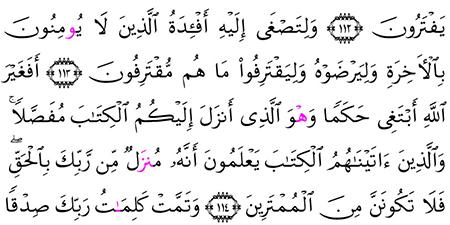 يَفْتَرُونَ ﴿١١٢﴾ وَلِتَصْغَىٰٓ إِلَيْهِ أَفْـِٔدَةُ ٱلَّذِينَ لَا يُومِنُونَ
بِٱلْأَخِرَةِ وَلِيَرْضَوْهُ وَلِيَقْتَرِفُوا۟ مَا هُم مُّقْتَرِفُونَ ﴿١١٣﴾ أَفَغَيْرَ
ٱللَّهِ أَبْتَغِى حَكَمًا وَهْوَ ٱلَّذِى أَنزَلَ إِلَيْكُمُ ٱلْكِتَـٰبَ مُفَصَّلًا ۚ
وَٱلَّذِينَ ءَاتَيْنَـٰهُمُ ٱلْكِتَـٰبَ يَعْلَمُونَ أَنَّهُۥ مُنزَلٌ مِّن رَّبِّكَ بِٱلْحَقِّ ۖ
فَلَا تَكُونَنَّ مِنَ ٱلْمُمْتَرِينَ ﴿١١٤﴾ وَتَمَّتْ كَلِمَـٰتُ رَبِّكَ صِدْقًا